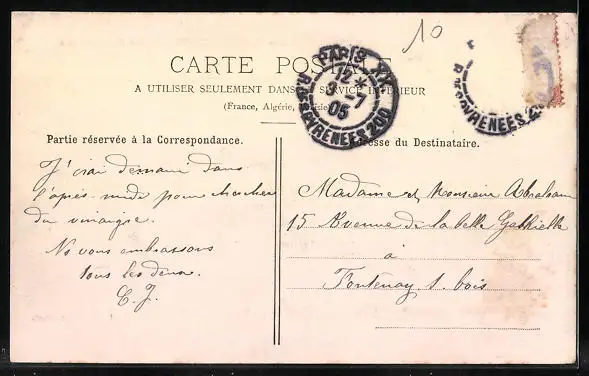 10
CARTE POSTALE
A UTILISER SEULEMENT DANS LE SERVICE INTERIEUR
(France, Algérie, Tunisie)
PARIS XX
12*
3-7
05
R. DES PYRENEES 200
PYRENEES
Partie réservée à la Correspondance.
J'irai demain dans
l'après-midi pour chercher
du vinaigre.
Ns vous embrassons
tous les deux.
E. J.
Adresse du Destinataire.
Madame et Monsieur Abraham
15 Avenue de la belle Gabrielle
à
Fontenay s. bois